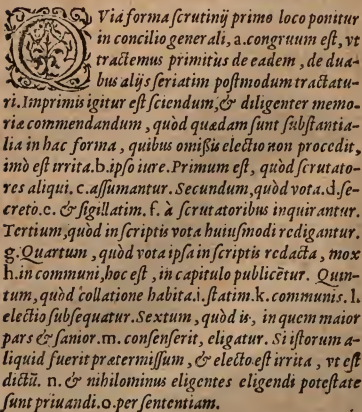 QVia forma scrutinij primo loco ponitur
in concilio generali, a. congruum est, vt
tractemus primitùs de eadem, de dua-
bus alijs seriatim postmodum tractatu-
ri. Imprimis igitur est sciendum, & diligenter memo-
riæ commendandum, quòd quædam sunt substantia-
lia in hac forma, quibus omißis electio non procedit,
imò est irrita. b. ipso iure. Primum est, quòd scrutato-
res aliqui. c. assumantur. Secundum, quòd vota. d. se-
creto. e. & sigillatim. f. à scrutatoribus inquirantur.
Tertium, quòd in scriptis vota huiusmodi redigantur.
g. Quartum, quòd vota ipsa in scriptis redacta, mox
h. in communi, hoc est, in capitulo publicẽtur. Quin-
tum, quòd collatione habita. i. statim. k. communis. l.
electio subsequatur. Sextum, quòd is, in quem maior
pars & sanior. m. consenserit, eligatur. Si istorum a-
liquid fuerit prætermissum, & electo est irrita, vt est
dictũ. n. & nihilominus eligentes eligendi potestate
sunt priuandi. o. per sententiam.